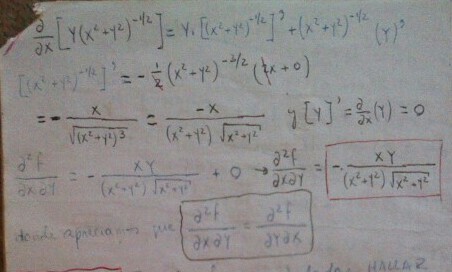 ∂/∂x [Y(x²+y²)^(-1/2)] = Y·[(x²+y²)^(-1/2)]' + (x²+y²)^(-1/2) (Y)'
[(x²+y²)^(-1/2)]' = -1/2 (x²+y²)^(-3/2) (2x+0)
= - x/√((x²+y²)³) = -x/((x²+y²)√(x²+y²)) y [Y]' = ∂/∂x (Y) = 0
∂²f/∂x∂y = - XY/((x²+y²)√(x²+y²)) + 0 → ∂²f/∂x∂y = - XY/((x²+y²)√(x²+y²))
donde apreciamos que ∂²f/∂x∂y = ∂²f/∂y∂x
HALLAR